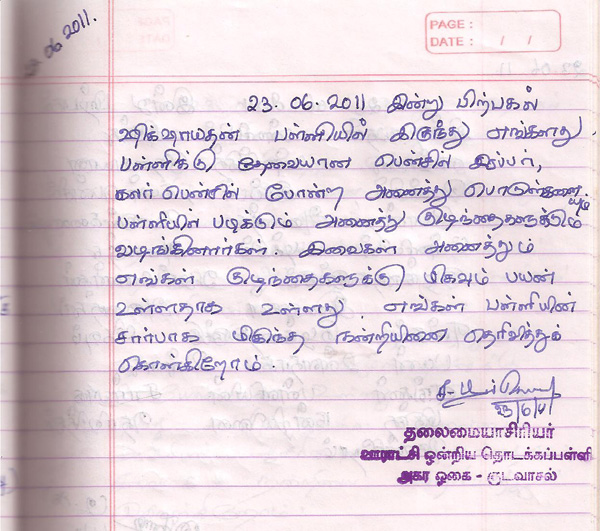 23.06.2011.
PAGE :
DATE : / /
23.06.2011 இன்று பிற்பகல்
ஷிக்ஷாயதன் பள்ளியில் இருந்து எங்களது
பள்ளிக்கு தேவையான பென்சில் இரப்பர்,
கலர் பென்சில் போன்ற அனைத்து பொருள்களையும்
பள்ளியில் படிக்கும் அனைத்து குழந்தைகளுக்கும்
வழங்கினார்கள். இவைகள் அனைத்தும்
எங்கள் குழந்தைகளுக்கு மிகவும் பயன்
உள்ளதாக உள்ளது. எங்கள் பள்ளியின்
சார்பாக மிகுந்த நன்றியினை தெரிவித்துக்
கொள்கிறோம்.
23/6/11
தலைமையாசிரியர்
ஊராட்சி ஒன்றிய தொடக்கப்பள்ளி
அகர ஓகை - குடவாசல்